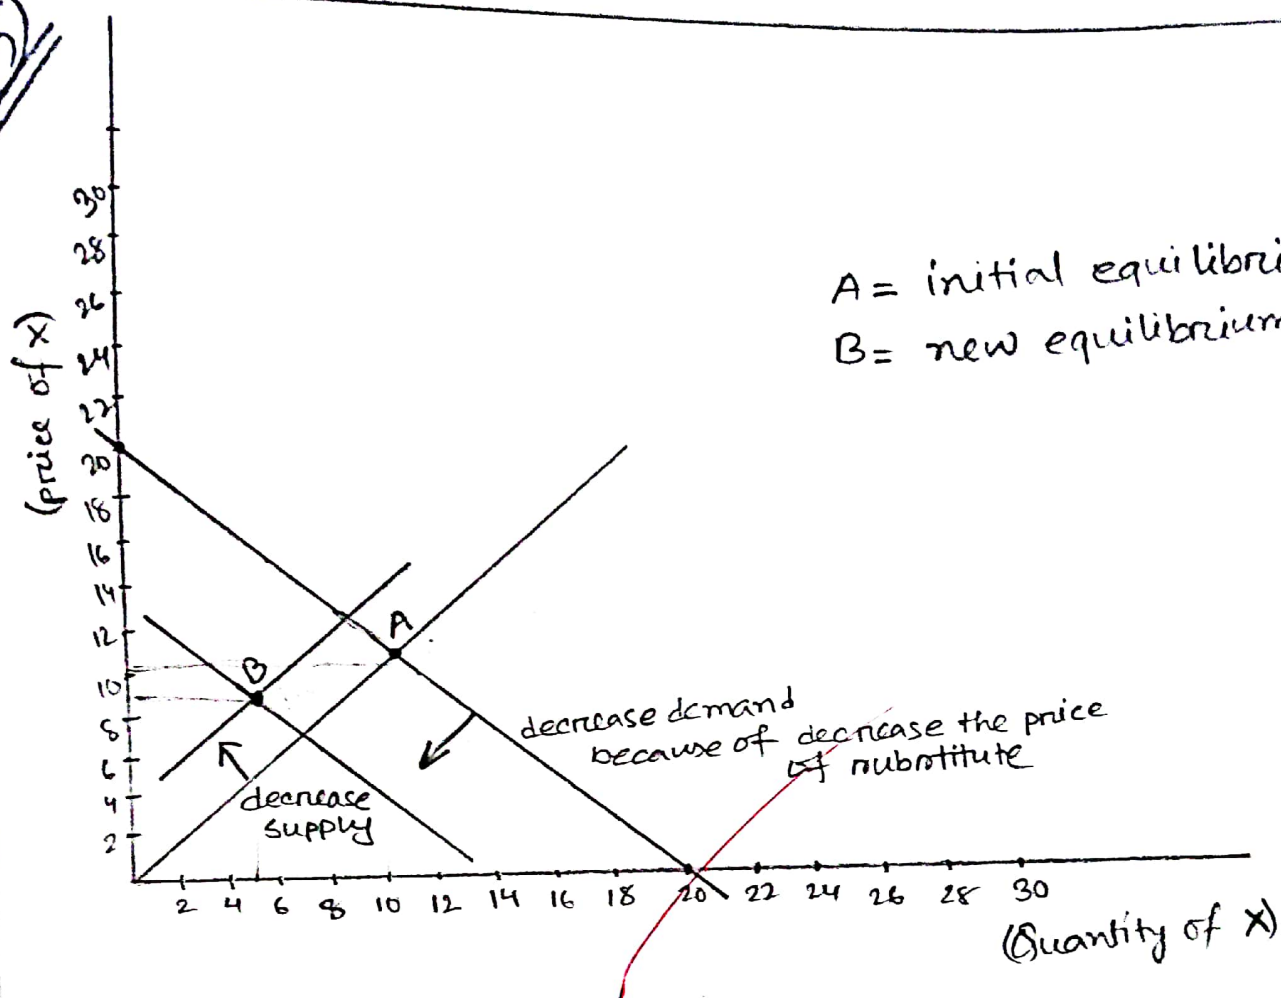 30
28
26
24
22
20
18
16
14
12
10
8
6
4
2
(price of x)
A = initial equilibri
B = new equilibrium
A
B
decrease demand
because of decrease the price
of substitute
decrease
supply
2 4 6 8 10 12 14 16 18 20 22 24 26 28 30
(Quantity of X)